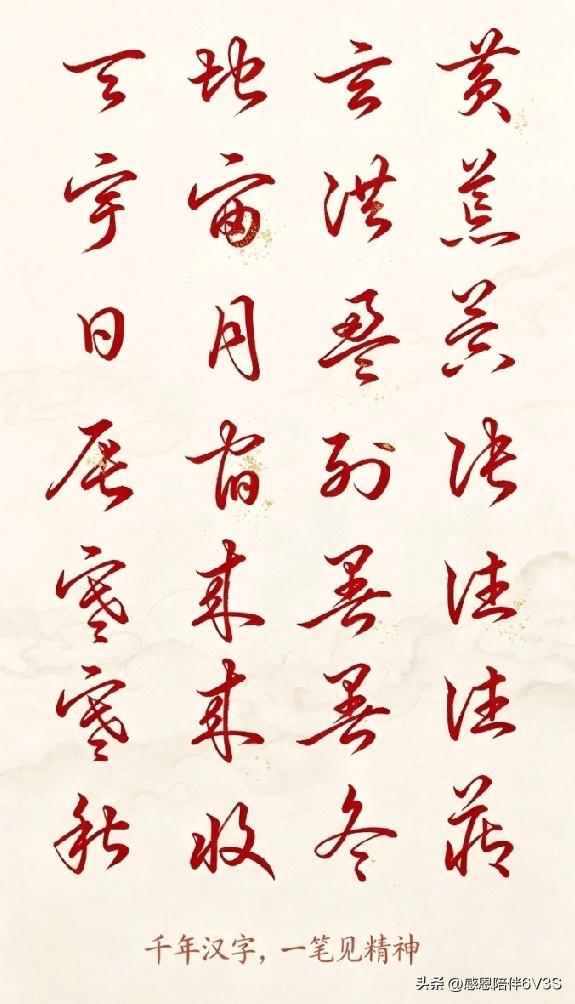 天地玄黄
宇宙洪荒
日月盈
辰宿列张
寒来暑往
寒来暑往
秋收冬藏
千年汉字，一笔见精神
头条 @感恩陪伴6V3S